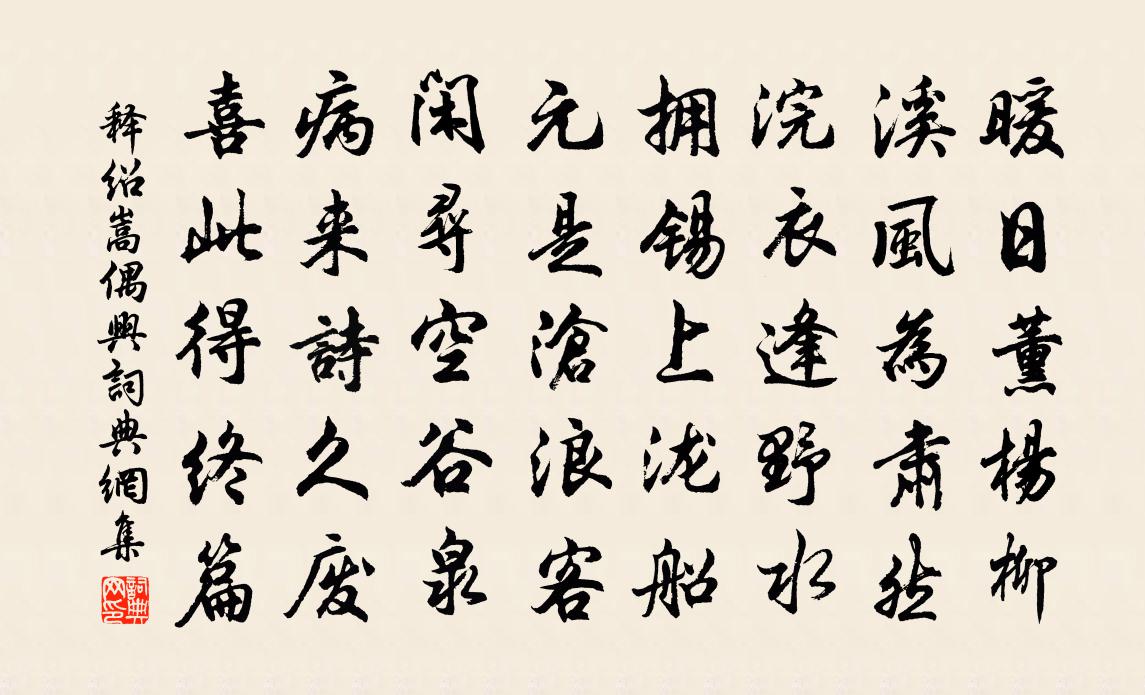 暖日薰楊柳
溪風為肅然
浣衣逢野水
拥锡上泷船
元是滄浪客
閑尋空谷泉
病来詩久废
喜此得终篇
释绍嵩偶興詞典網集
詞典网印